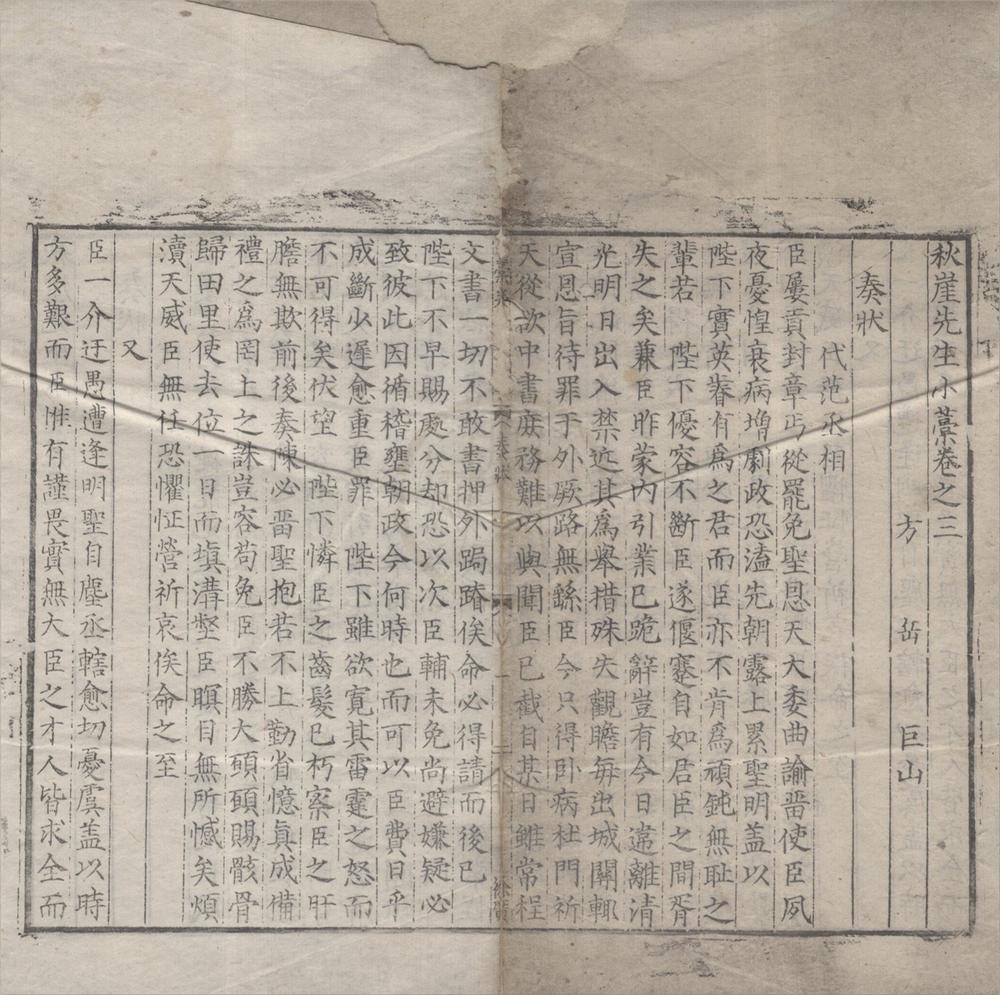 秋崖先生小藁卷之三
方 岳 巨山
奏狀
代范丞相
臣屢貢封章丐從罷免聖恩天大委曲諭畱使臣夙
夜憂惶衰病增劇政恐溘先朝露上累聖明盖以
陛下實英睿有爲之君而臣亦不肯爲頑鈍無恥之
輩若 陛下優容不斷臣遂偃蹇自如君臣之間胥
失之矣兼臣昨蒙內引業已跪辭豈有今日違離清
光明日出入禁近其爲舉措殊失觀瞻每出城闉輙
宣恩旨待罪于外厥路無繇臣今只得卧病杜門祈
天從欲中書庶務難以與聞臣已截自某日雖常程
文書一切不敢書押外跼蹐俟命必得請而後已
陛下不早賜處分却恐以次臣輔未免尚避嫌疑必
致彼此因循稽壅朝政今何時也而可以臣費日乎
成斷少遲愈重臣罪 陛下雖欲寬其雷霆之怒而
不可得矣伏望 陛下憐臣之齒髮已朽察臣之肝
膽無欺前後奏陳必畱聖抱若不上勤省憶眞成備
禮之爲罔上之誅豈容苟免臣不勝大頋頋賜骸骨
歸田里使去位一日而塡溝壑臣瞑目無所憾矣煩
瀆天威臣無任恐懼怔營祈哀俟命之至
又
臣一介迂愚遭逢明聖自塵丞轄愈切憂虞盖以時
方多艱而臣惟有謹畏實無大臣之才人皆求全而